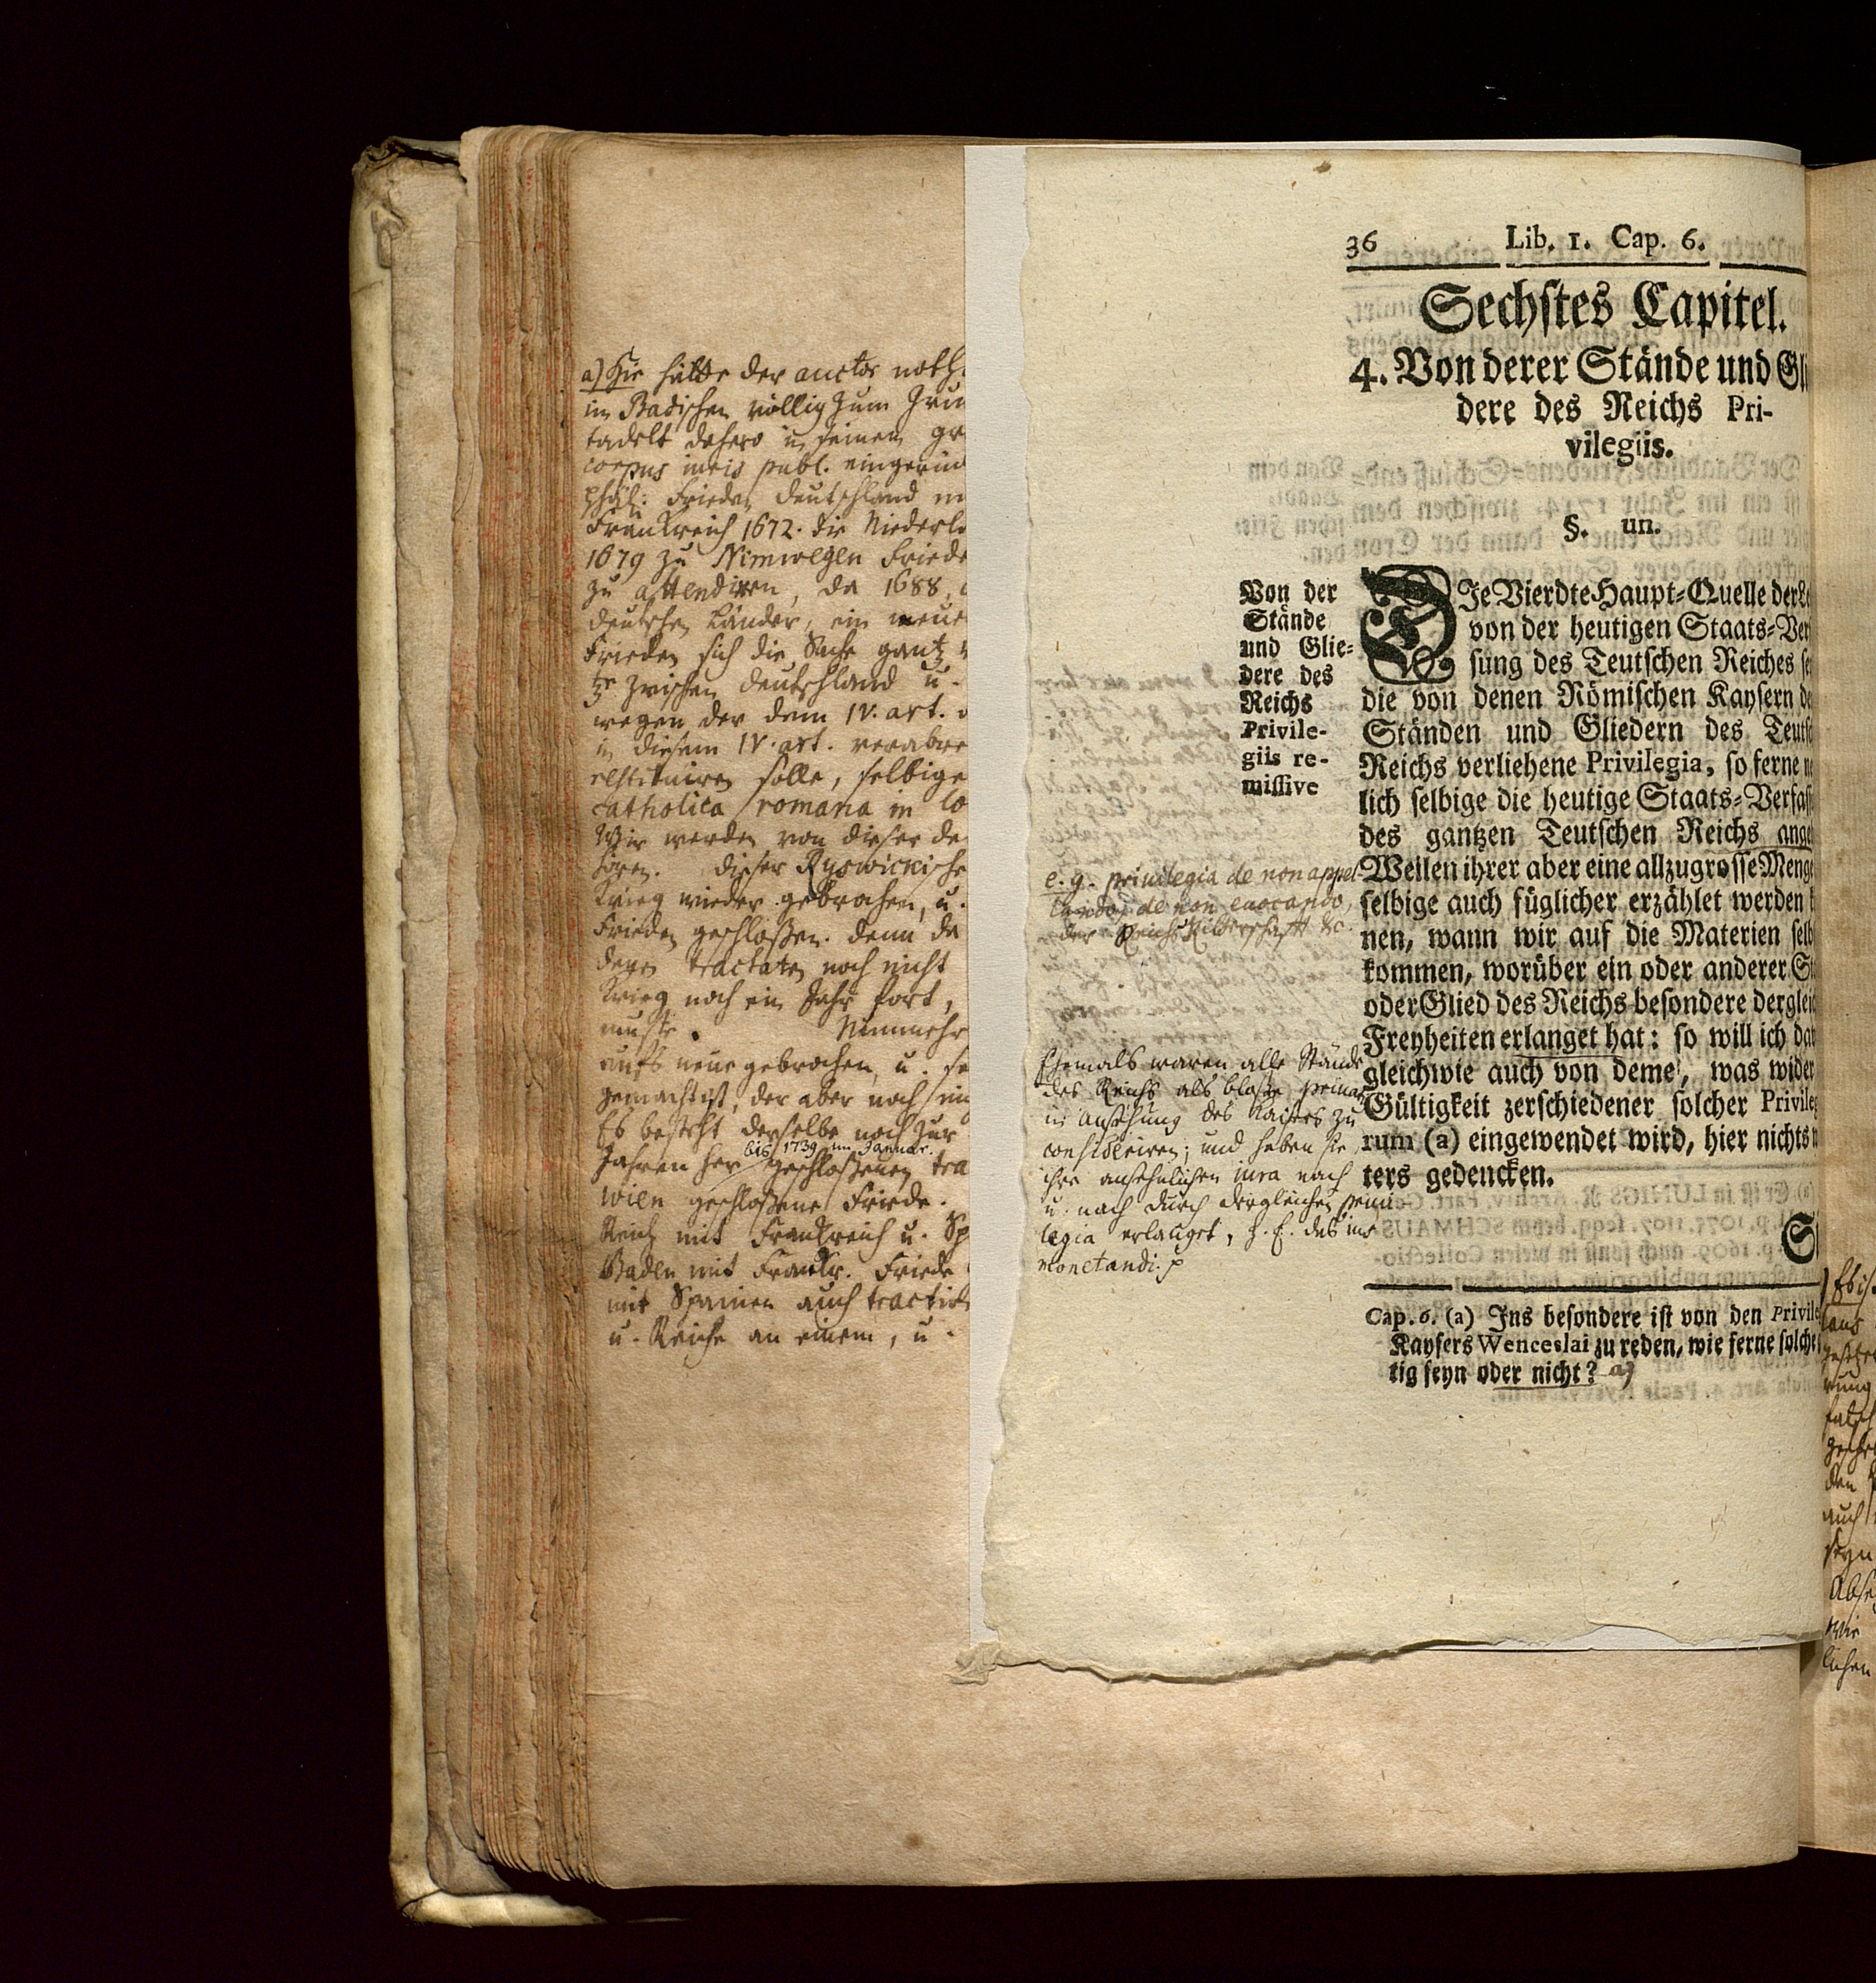 a) Hie hätte der auctor noth
im Badischen völlig zum
tadelt dahero in seinem
corpus iuris publ. eingerück
Frieden Deutschland
Franckreich 1672. die Niederla
1679 zu Nimwegen Friede
zu attendiren, da 1688,
deutschen Länder, ein neue
Frieden sich die Sache gantz
zwischen Deutschland u.
wegen der dem IV. art.
in diesem IV. art. verabre
restituiren solle, selbige
catholica romana in lo
Wir werden von dieser
hören. dieser Ryswickische
Krieg wieder gebrochen, u.
Frieden geschloßen. denn da
deren tractaten noch nicht
Krieg noch ein Jahr fort,
muste. Nunmehr
aufs neue gebrochen, u.
gemacht ist, der aber noch
Es besteht derselbe noch zur
bis 1739 im Januar.
Jahren her geschloßenen tra
Wien geschloßene Friede.
Reich mit Franckreich u. Sp
Baden mit Franckr. Friede
mit Spanien auch
u. Reiche an einem, u.
36 Lib. 1. Cap. 6.
Sechstes Capitel.
4. Von derer Stände und Gli
dere des Reichs Pri-
vilegiis.
§. un.
Von der
Stände
und Glie-
dere des
Reichs
Privile-
giis re-
missive
DIe Vierdte Haupt-Quelle der Le
von der heutigen Staats-Ver
sung des Teutschen Reiches
die von denen Römischen Kaysern de
Ständen und Gliedern des Teutsc
Reichs verliehene Privilegia, so ferne
lich selbige die heutige Staats-Verfas
des gantzen Teutschen Reichs ange
Weilen ihrer aber eine allzugrosse Meng
selbige auch füglicher erzählet werden
nen, wann wir auf die Materien selb
kommen, worüber ein oder anderer S
oder Glied des Reichs besondere derglei
Freyheiten erlanget hat: so will ich da
gleichwie auch von deme, was wider
Gültigkeit zerschiedener solcher Privile
rum (a) eingewendet wird, hier nichts
ters gedencken.
e. g. privilegia de non appel
lando, de non evocando,
der Reichs Ritterschafft &c.
Ehemals waren alle Stände
des Reichs als bloße privat
in Ansehung des Kaisers zu
considériren; und haben sie
ihre ansehnlichen iura nach
u. nach durch dergleichen privi
legia erlanget, z. E. das ius
monetandi.
S
Cap. 6. (a) Ins besondere ist von den Privile
Kaysers Wenceslai zu reden, wie ferne solche
tig seyn oder nicht? a)
auch
seyn
Wir
lichen